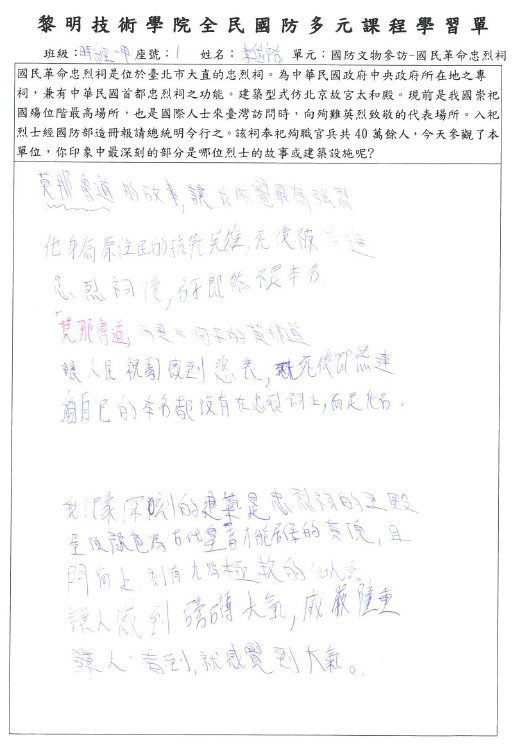 黎明技術學院全民國防多元課程學習單
班級： 座號：1 姓名： 單元：國防文物參訪-國民革命忠烈祠
國民革命忠烈祠是位於臺北市大直的忠烈祠。為中華民國政府中央政府所在地之專
祠，兼有中華民國首都忠烈祠之功能。建築型式仿北京故宮太和殿。現前是我國崇祀
國殤位階最高場所，也是國際人士來臺灣訪問時，向殉難英烈致敬的代表場所。入祀
烈士經國防部造冊報請總統明令行之。該祠奉祀殉職官兵共 40 萬餘人，今天參觀了本
單位，你印象中最深刻的部分是哪位烈士的故事或建築設施呢?
莫那魯道的故事，讓我感覺最為強烈
他身為原住民的抗 英雄，死後被
忠烈祠後，名子既然不是本名
莫那魯道，
讓人民 感到悲哀，死後既然連
自己的本名都沒有在忠烈祠上，而是化名.
我印象深刻的建築是忠烈祠的主殿
屋頂 色為古代皇帝才能 的黃頂，且
門面上，刻有九
讓人感到磅礡大氣，威嚴隆重
讓人一看到，就感覺到大氣。